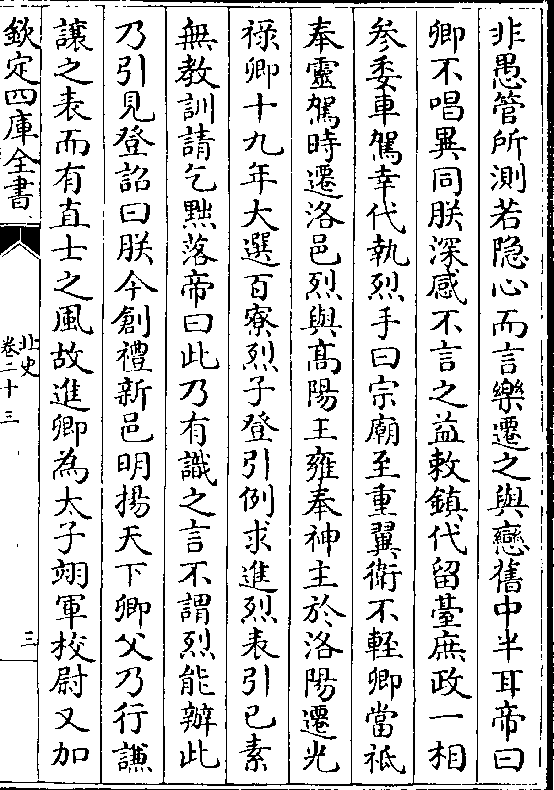 非愚管所測若隐心而言樂遷之與戀舊中半耳帝曰
卿不唱異同朕深感不言之益敕鎮代留臺庶政一相
参委車駕幸代執烈手曰宗廟至重翼衛不輕卿當祗
奉靈駕時遷洛邑烈與髙陽王雍奉神主於洛陽遷光
祿卿十九年大選百寮烈子登引例求進烈表引已素
無教訓請乞黜落帝曰此乃有識之言不謂烈能辦此
乃引見登詔曰朕今創禮新邑明揚天下卿父乃行謙
讓之表而有直士之風故進卿為太子翊軍校尉又加
欽定四庫全書
北史
卷二十三
三